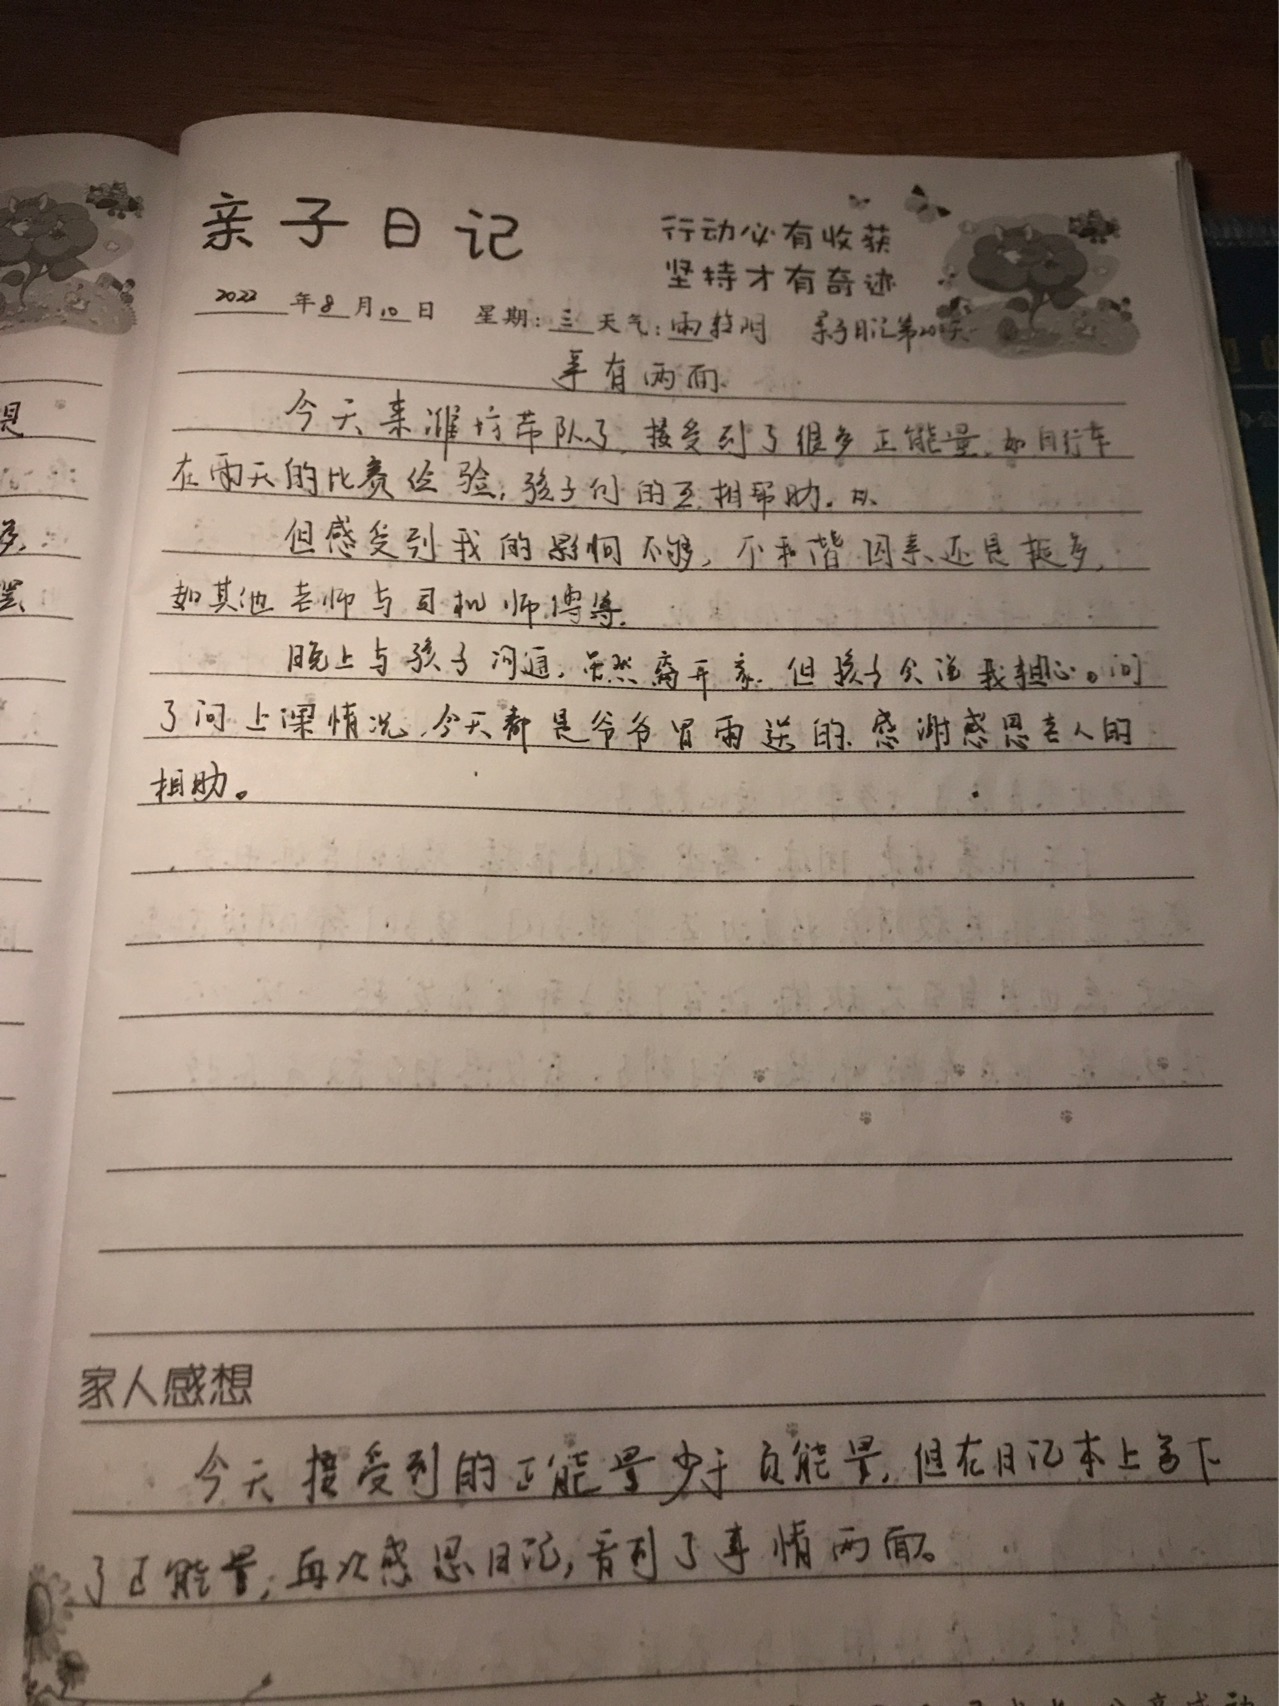 亲子日记
行动必有收获
坚持才有奇迹
2022年8月10日 星期:三 天气:雨转阴 亲子日记第20天
事有两面
今天来潍坊带队了,接受到了很多正能量,如自行车
在雨天的比赛经验,孩子们的互相帮助。
但感受到我的影响不够,不和谐因素还是挺多,
如其他老师与司机师傅等,
晚上与孩子沟通,虽然离开家,但孩子会让我担心。问
了问上课情况,今天都是爷爷冒雨送的,感谢感恩老人的
相助。
家人感想
今天接受到的正能量少于负能量,但在日记本上写下
了正能量,再次感恩日记,看到了事情两面。